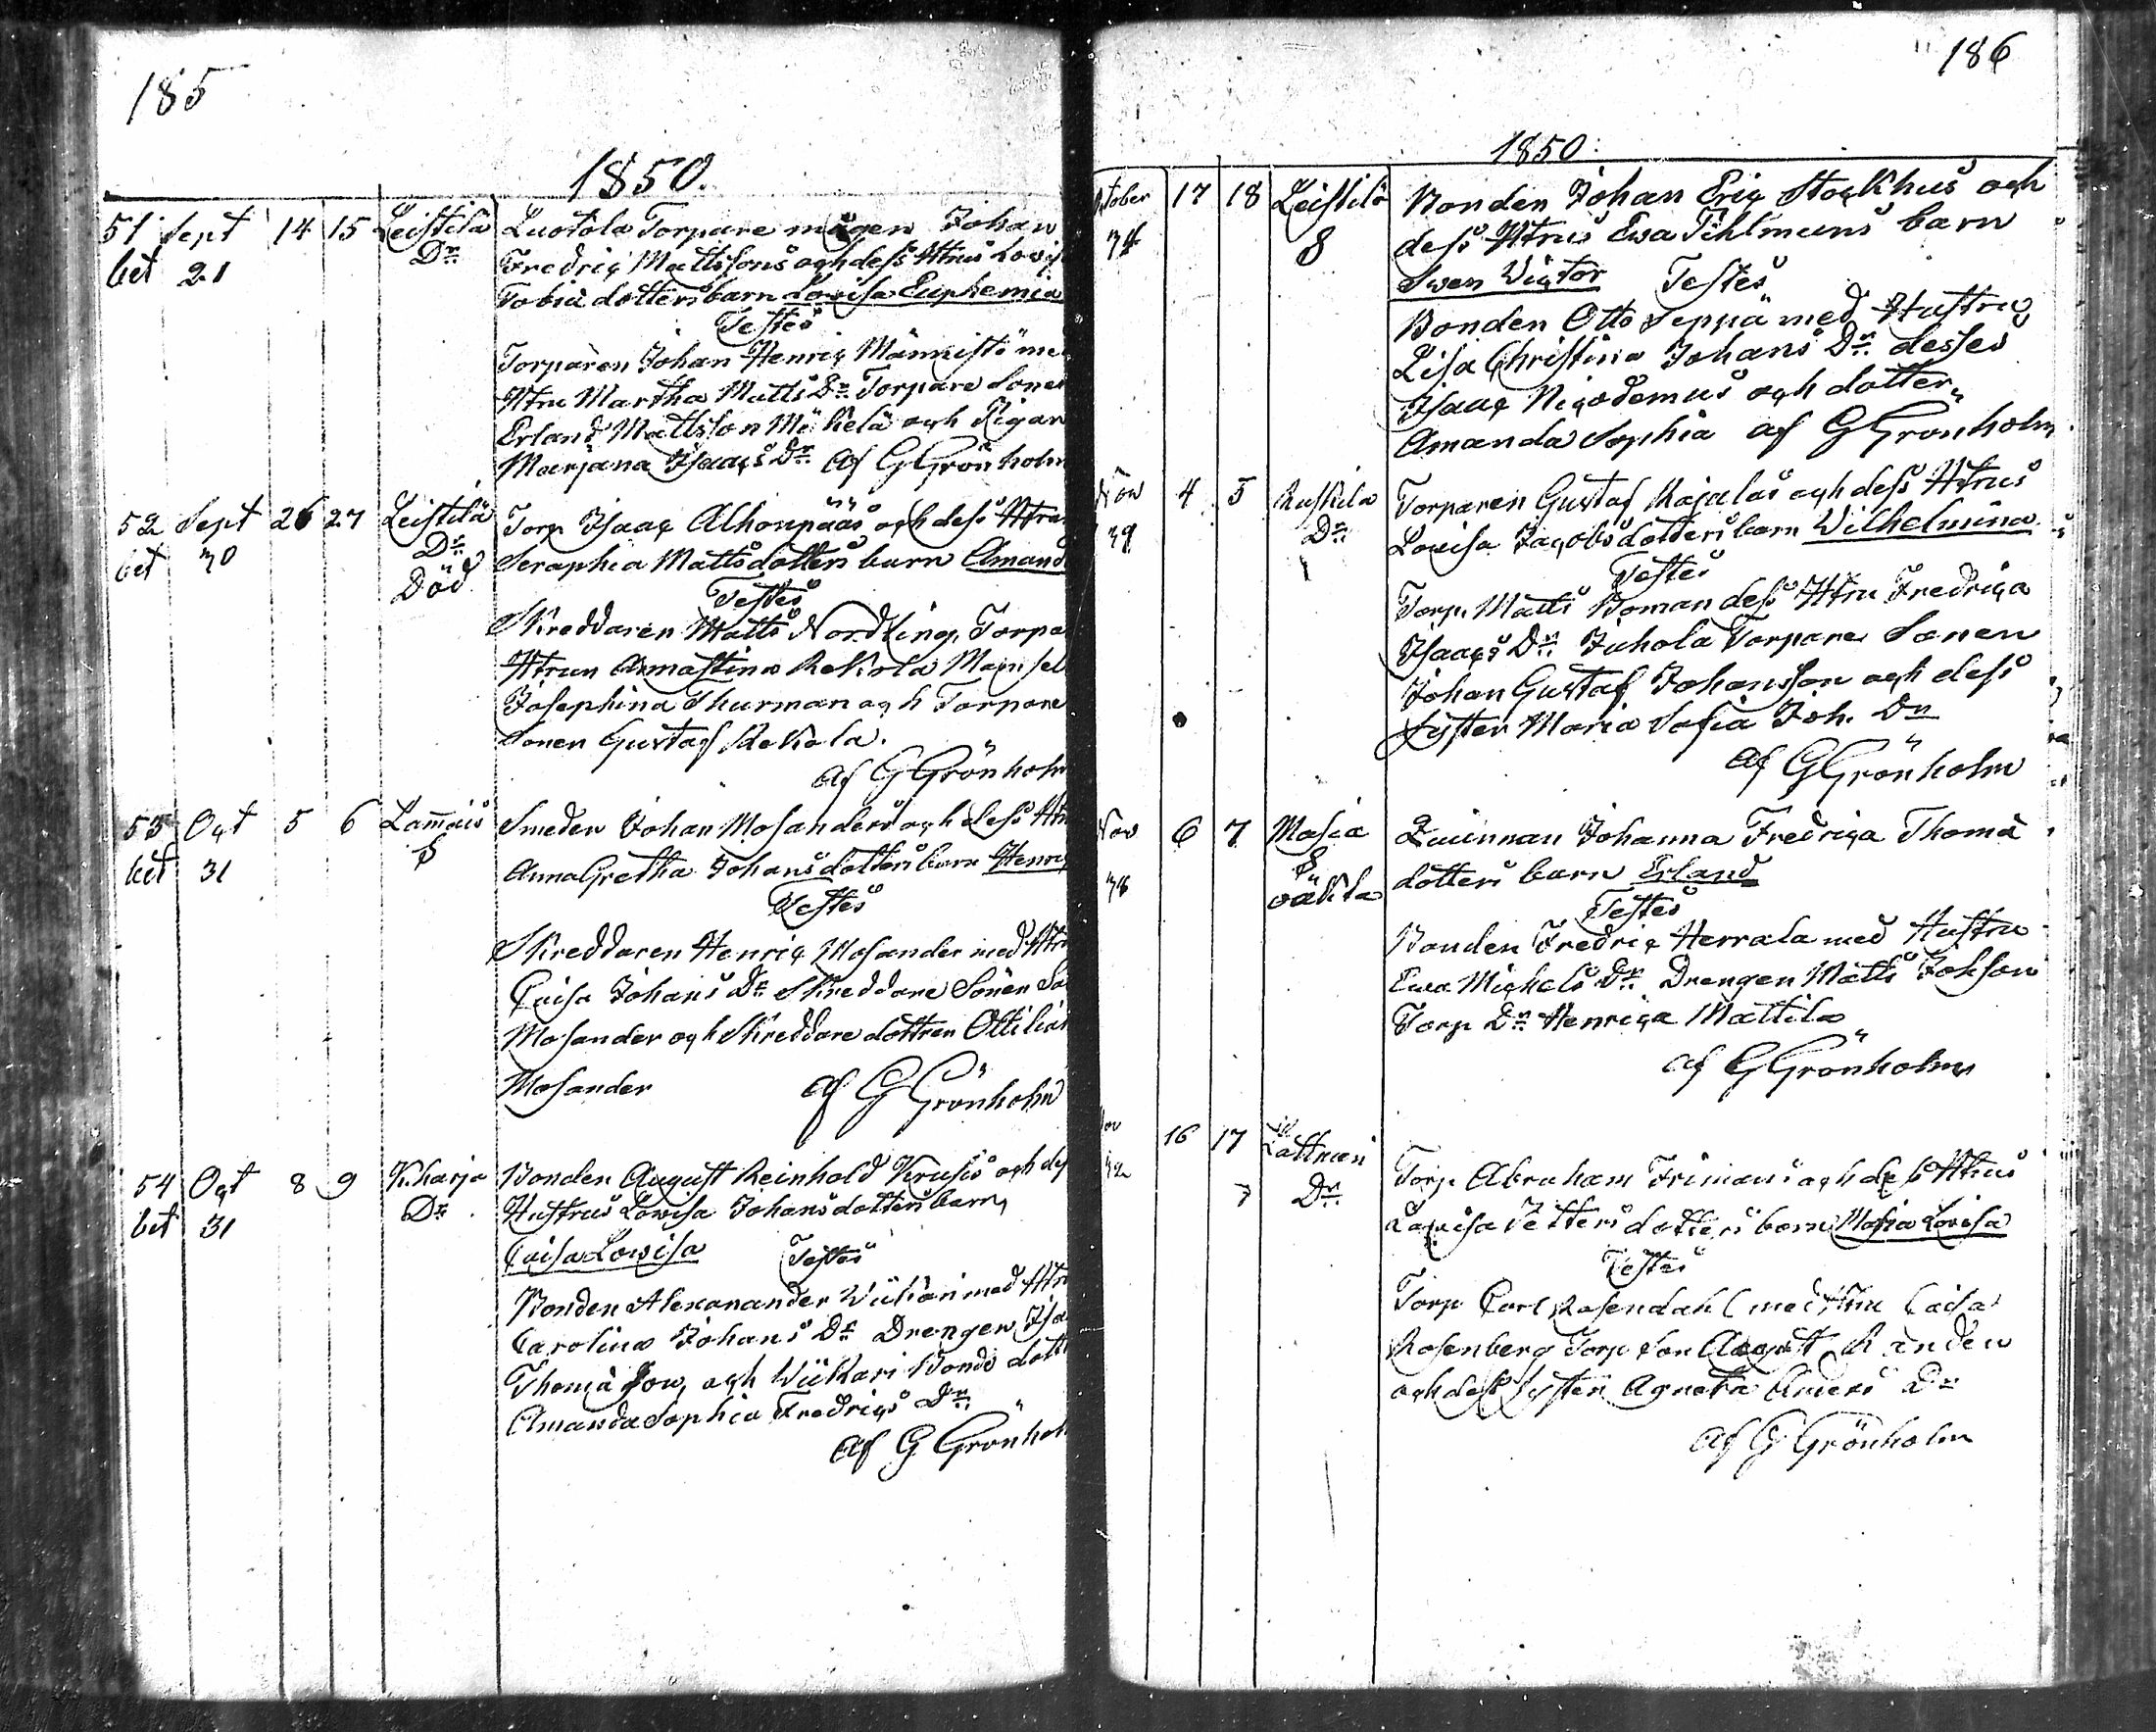 185
1850.
51 Sept 14 15 Leistilä Luotola Torpare mågen Johan
bet 21 Dr Fredric Mattssons och dess Htrus Lovis
Tobiä dotters barn Lovisa Euphemia
Testes
Torparen Johan Henric Männistö me
Htru Martha Matts Dr Torpare Sonen
Erland Mattsson Mäkelä och Pigan
Marjana Isaacs Dr af G Grönholm
52 Sept 26 27 Leistilä Torp Isaac Alhonpääs och dess Htrus
bet 30 Dr Seraphia Mattsdotters barn Amand
Död
Testes
Skreddaren Matts Nordling, Torpa
Htrun Annastina Rekola Mamsel
Josephina Thurman och Torpare
Sonen Gustaf Rekola.
af G Grönholm
53 Oct 5 6 Lammais Smeden Johan Mosanders och dess Htr
bet 31 S Anna Gretha Johansdotters barn Henric
Testes
Skreddaren Henric Mosander med Htru
Caisa Johans Dr Skreddare Sonen
Mosander och Skreddare dottren Ottilia
Mosander af G Grönholm
54 Oct 8 9 K.harja Bonden August Reinhold Krusis och des
bet 31 Dr Hustrus Lowisa Johansdotters barn
Caisa Lowisa Testes
Bonden Alexanander Wiikari med Htru
Carolina Johans Dr Drengen Isa
Thomä Son, och Wiikari Bonde dott
Amanda Sophia Fredrics Dr
af G Grönhol
186
1850.
October 17 18 Leistilä Bonden Johan Eric Stockhus och
34 S dess Htrus Ewa Tihlmans barn
Swen Victor Testes
Bonden Otto Seppä med Hustru
Lisa Christina Johans Dr desses
Isaac Nicodemus och dotter
Amanda Sophia af G Grönholm
Nov 4 5 Ruskila Torparen Gustaf Kajalas och dess Htrus
39 Dr Lovisa Jacobsdotters barn Wilhelmina
Testes
Torp. Matts Boman dess Htru Fredrica
Isaacs Dr Juhola Torpare Sonen
Johan Gustaf Johansson och dess
Syster Maria Sofia Joh. Dr
af G Grönholm
Nov 6 7 Masia Quinnan Johanna Fredrica Thomä
38 S dotters barn Erland
oäkta
Testes
Bonden Fredric Herrala med Hustru
Ewa Michels Dr Drengen Matts Johson
Torp Dr Henrica Mattila
af G Grönholm
Nov 16 17 Lattmeri Torp Abraham Frimans och dess Htrus
32 Dr Lowisa Petters dotters barn Maria Lovisa
Testes
Torp Carl Rosendahl med Htru Caisa
Rosenberg Torp Son August Randen
och dess Syster Agneta Anders Dr
af G Grönholm